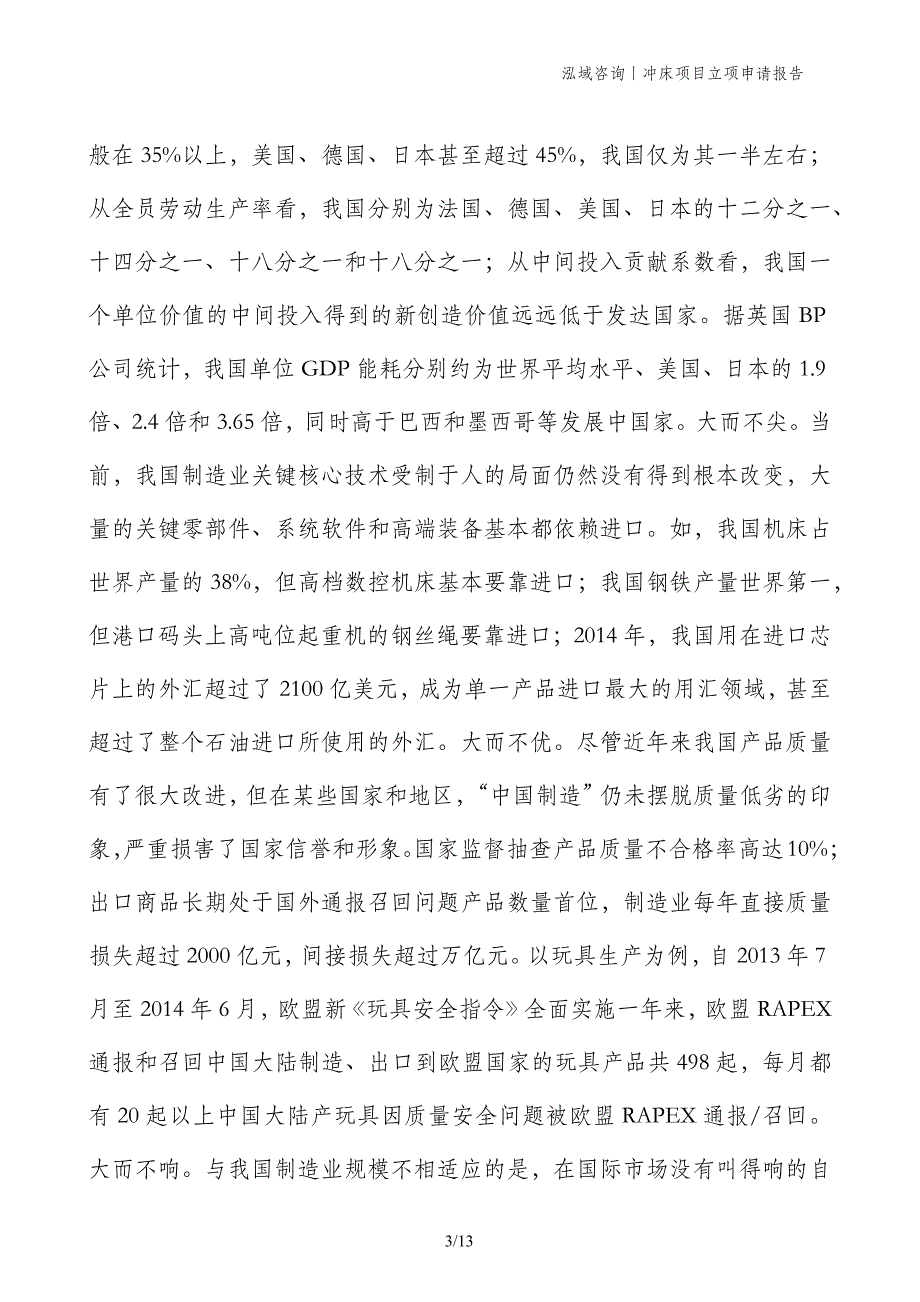 泓域咨询丨冲床项目立项申请报告
般在 35%以上，美国、德国、日本甚至超过 45%，我国仅为其一半左右；
从全员劳动生产率看，我国分别为法国、德国、美国、日本的十二分之一、
十四分之一、十八分之一和十八分之一；从中间投入贡献系数看，我国一
个单位价值的中间投入得到的新创造价值远远低于发达国家。据英国 BP
公司统计，我国单位 GDP 能耗分别约为世界平均水平、美国、日本的 1.9
倍、2.4 倍和 3.65 倍，同时高于巴西和墨西哥等发展中国家。大而不尖。当
前，我国制造业关键核心技术受制于人的局面仍然没有得到根本改变，大
量的关键零部件、系统软件和高端装备基本都依赖进口。如，我国机床占
世界产量的 38%，但高档数控机床基本要靠进口；我国钢铁产量世界第一，
但港口码头上高吨位起重机的钢丝绳要靠进口；2014 年，我国用在进口芯
片上的外汇超过了 2100 亿美元，成为单一产品进口最大的用汇领域，甚至
超过了整个石油进口所使用的外汇。大而不优。尽管近年来我国产品质量
有了很大改进，但在某些国家和地区，“中国制造”仍未摆脱质量低劣的印
象，严重损害了国家信誉和形象。国家监督抽查产品质量不合格率高达 10%；
出口商品长期处于国外通报召回问题产品数量首位，制造业每年直接质量
损失超过 2000 亿元，间接损失超过万亿元。以玩具生产为例，自 2013 年 7
月至 2014 年 6 月，欧盟新《玩具安全指令》全面实施一年来，欧盟 RAPEX
通报和召回中国大陆制造、出口到欧盟国家的玩具产品共 498 起，每月都
有 20 起以上中国大陆产玩具因质量安全问题被欧盟 RAPEX 通报/召回。
大而不响。与我国制造业规模不相适应的是，在国际市场没有叫得响的自
3/13